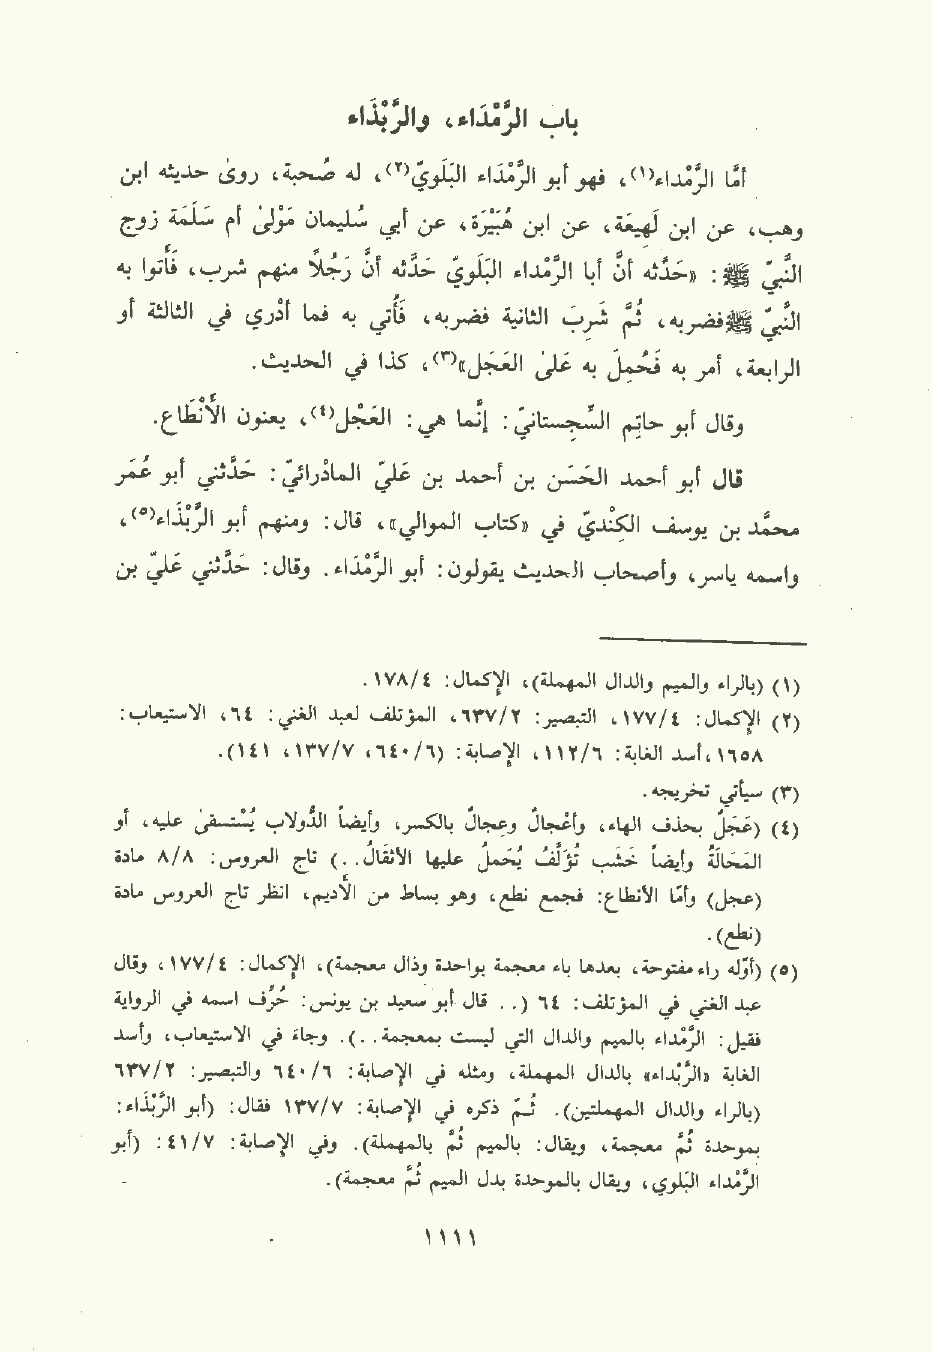 باب الرَّمْدَاء، والرَّبْذَاء
أمَّا الرَّمْداء(١)، فهو أبو الرَّمْدَاء البَلَويّ(٢)، له صُحبة، روىٰ حديثه ابن
وهب، عن ابن لَهِيعَة، عن ابن هُبَيْرَة، عن أبي سُليمان مَوْلىٰ أم سَلَمَة زوج
النَّبيّ ﷺ: «حَدَّثه أنَّ أبا الرَّمْداء البَلَويّ حَدَّثه أنَّ رَجُلاً منهم شرب، فأَتوا به
النَّبيّ ﷺ فضربه، ثُمَّ شَرِبَ الثانية فضربه، فأُتي به فما أدْري في الثالثة أو
الرابعة، أمر به فَحُمِلَ به عَلىٰ العَجَل»(٣)، كذا في الحديث.
وقال أبو حاتِم السِّجِستانيّ: إنَّما هي: العَجْل(٤)، يعنون الأَنْطَاع.
قال أبو أحمد الحَسَن بن أحمد بن عَليّ الماذْرائيّ: حَدَّثني أبو عُمَر
محمَّد بن يوسف الكِنْديّ في «كتاب الموالي»، قال: ومنهم أبو الرَّبْذَاء(٥)،
واسمه ياسر، وأصحاب الحديث يقولون: أبو الرَّمْدَاء. وقال: حَدَّثني عَليّ بن
(١) (بالراء والميم والدال المهملة)، الإكمال: ١٧٨/٤.
(٢) الإكمال: ١٧٧/٤، التبصير: ٦٣٧/٢، المؤتلف لعبد الغني: ٦٤، الاستيعاب:
١٦٥٨، أسد الغابة: ١١٢/٦، الإصابة: (٦٤٠/٦، ١٣٧/٧، ١٤١).
(٣) سيأتي تخريجه.
(٤) (عَجَل بحذف الهاء، وأعْجالٌ وعِجالٌ بالكسر، وأيضاً الدُّولاب يُسْتسقىٰ عليه، أو
المَحَالةُ وأيضاً خَشَب تُؤَلَّفُ يُحمَلُ عليها الأثقَالُ..) تاج العروس: ٨/٨ مادة
(عجل) وأمّا الأنطاع: فجمع نطع، وهو بساط من الأديم، انظر تاج العروس مادة
(نطع).
(٥) (أوّله راء مفتوحة، بعدها باء معجمة بواحدة وذال معجمة)، الإكمال: ١٧٧/٤، وقال
عبد الغني في المؤتلف: ٦٤ (.. قال أبو سعيد بن يونس: حُرِّف اسمه في الرواية
فقيل: الرَّمْداء بالميم والدال التي ليست بمعجمة..). وجاءَ في الاستيعاب، وأسد
الغابة «الرَّبْداء» بالدال المهملة، ومثله في الإصابة: ٦٤٠/٦ والتبصير: ٦٣٧/٢
(بالراء والدال المهملتين). ثُمَّ ذكره في الإصابة: ١٣٧/٧ فقال: (أبو الرَّبْذَاء:
بموحدة ثُمَّ معجمة، ويقال: بالميم ثُمَّ بالمهملة). وفي الإصابة: ٤١/٧: (أبو
الرَّمْداء البَلَوي، ويقال بالموحدة بدل الميم ثُمَّ معجمة).
١١١١